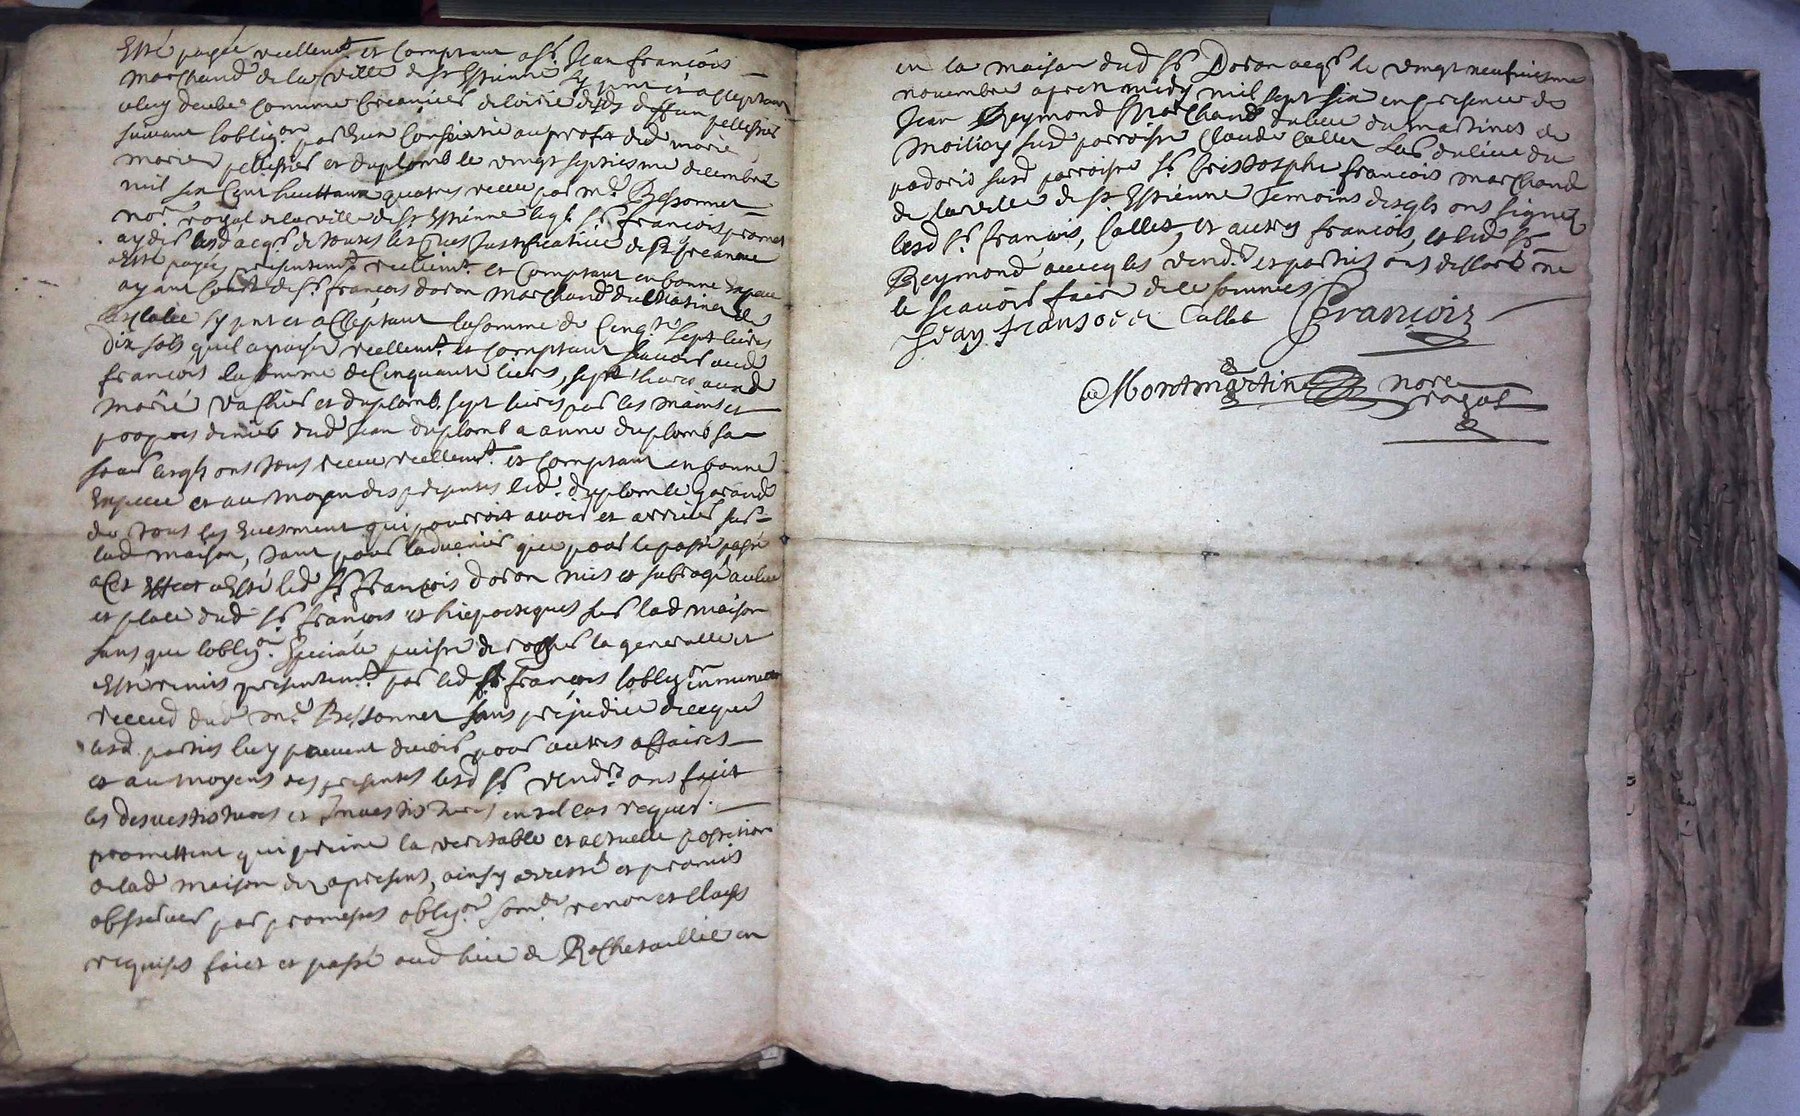 Esté payée reellemt et comptant a sr Jean françois
marchand de la ville de st Estienne sy pnt et acceptant
a luy deube comme creancier de loirie desds deffun pellissier
suivant lobligon par eux consentie au profit dud marie
marie pellissier et duplomb le vingt septiesme decembre
mil six cent huittante quatre receue par me Bessonnet
nore royal de la ville de st Estienne leql sr françois promet
aydés lesd acqr de toutes les pces Justificative de sa creance
a esté payée presentemt reellemt et comptant en bonne espece
ayant cours de sr françois doron marchand du Martinet de
sy pnt et acceptant la somme de cinqte sept livres
dix sols quil a payée reellemt et comptant scavoir aud
françois la somme de cinquante livres, sept livres aund
marie vachier et duplomb sept livres par les mains et
propres deniers dud Jean duplomb a anne duplomb sa
soeur lesqls ont tous receu reellemt et comptant en bonne
Espece et au moyen des presentes led. duplomb garand
de tous les evesment qui pourroit avoir et arriver sur
lad maison, tant pour ladvenir que pour le passé
a cet effect a esté led sr françois doron mis et subrogé au lieu
et place dud sr françois et hiepoteques sur lad maison
sans que lobligon speciale puisse deroger la generalle et
esté remis presentemt par led sr françois lobligon en minute
receud dud me Bessonnet sans prejudice de ce que
lesd parties luy peuvent devoir pour autres affaires
et au moyens des presentes lesd sr vendrs ont fait
les desvestitures et Investitures en tel cas requis.
promettent qui prenne la veritable et actuelle possession
de lad maison dez a present, ainsy arresté et promis
observer par promesses obligon soumon renon et clauses
requises faict et passé aud lieu de Rochetaillée en
en la maison dud sr Doron acqr le vingt neufviesme
novembre apres midy mil sept six en presence de
Jean Reymond marchand du lieu du martinet de
susd parroisse, Claude Callet du lieu du
susd parroisse sr Cristosphe françois marchand
de la ville de st Estienne Temoins desqls ont signez
lesd sr françois, Callet, et autres françois, et led sr
Reymond avecq les vendrs et parties ont desclaré ne
le scavoir faire de ce sommes
Jean francoies Callet Francois
Montmartin nore
royal